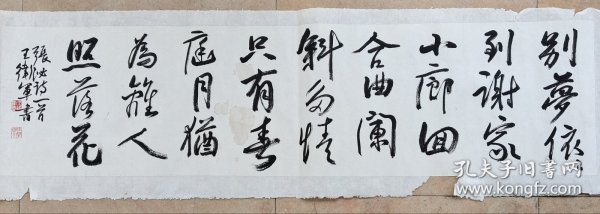 别夢依
到謝家
小廊回
合曲闌
斜多情
只有春
庭月猶
為離人
照落花
張泌詩一首
王衛軍書
孔夫子旧书网
www.kongfz.com